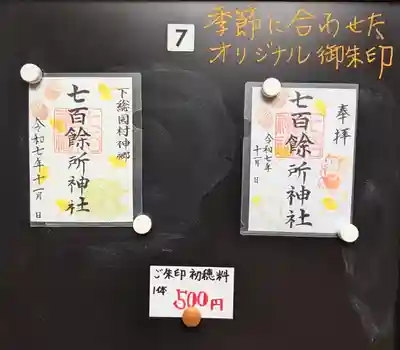 7
季節に合わせた
オリジナル御朱印
下総国村神郷
七百餘所神社
令和七年十一月 日
奉拝
七百餘所神社
令和七年
十一月 日
ご朱印初穂料
1体 500円